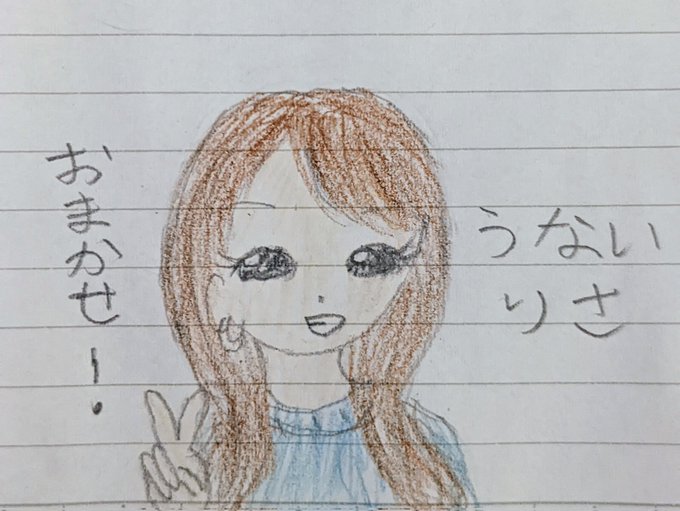 おまかせ!
うない
りさ